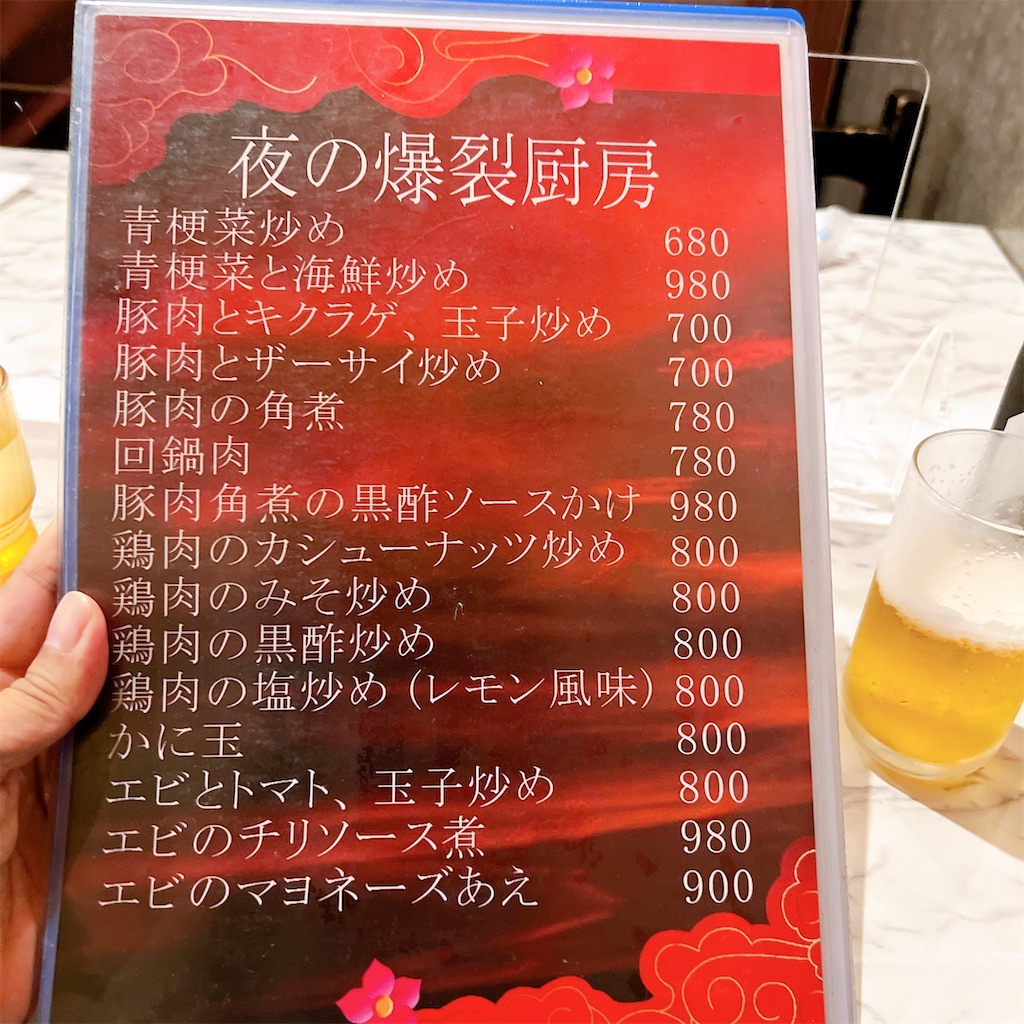 夜の爆裂厨房
青梗菜炒め 680
青梗菜と海鮮炒め 980
豚肉とキクラゲ、玉子炒め 700
豚肉とザーサイ炒め 700
豚肉の角煮 780
回鍋肉 780
豚肉角煮の黒酢ソースかけ 980
鶏肉のカシューナッツ炒め 800
鶏肉のみそ炒め 800
鶏肉の黒酢炒め 800
鶏肉の塩炒め(レモン風味) 800
かに玉 800
エビとトマト、玉子炒め 800
エビのチリソース煮 980
エビのマヨネーズあえ 900